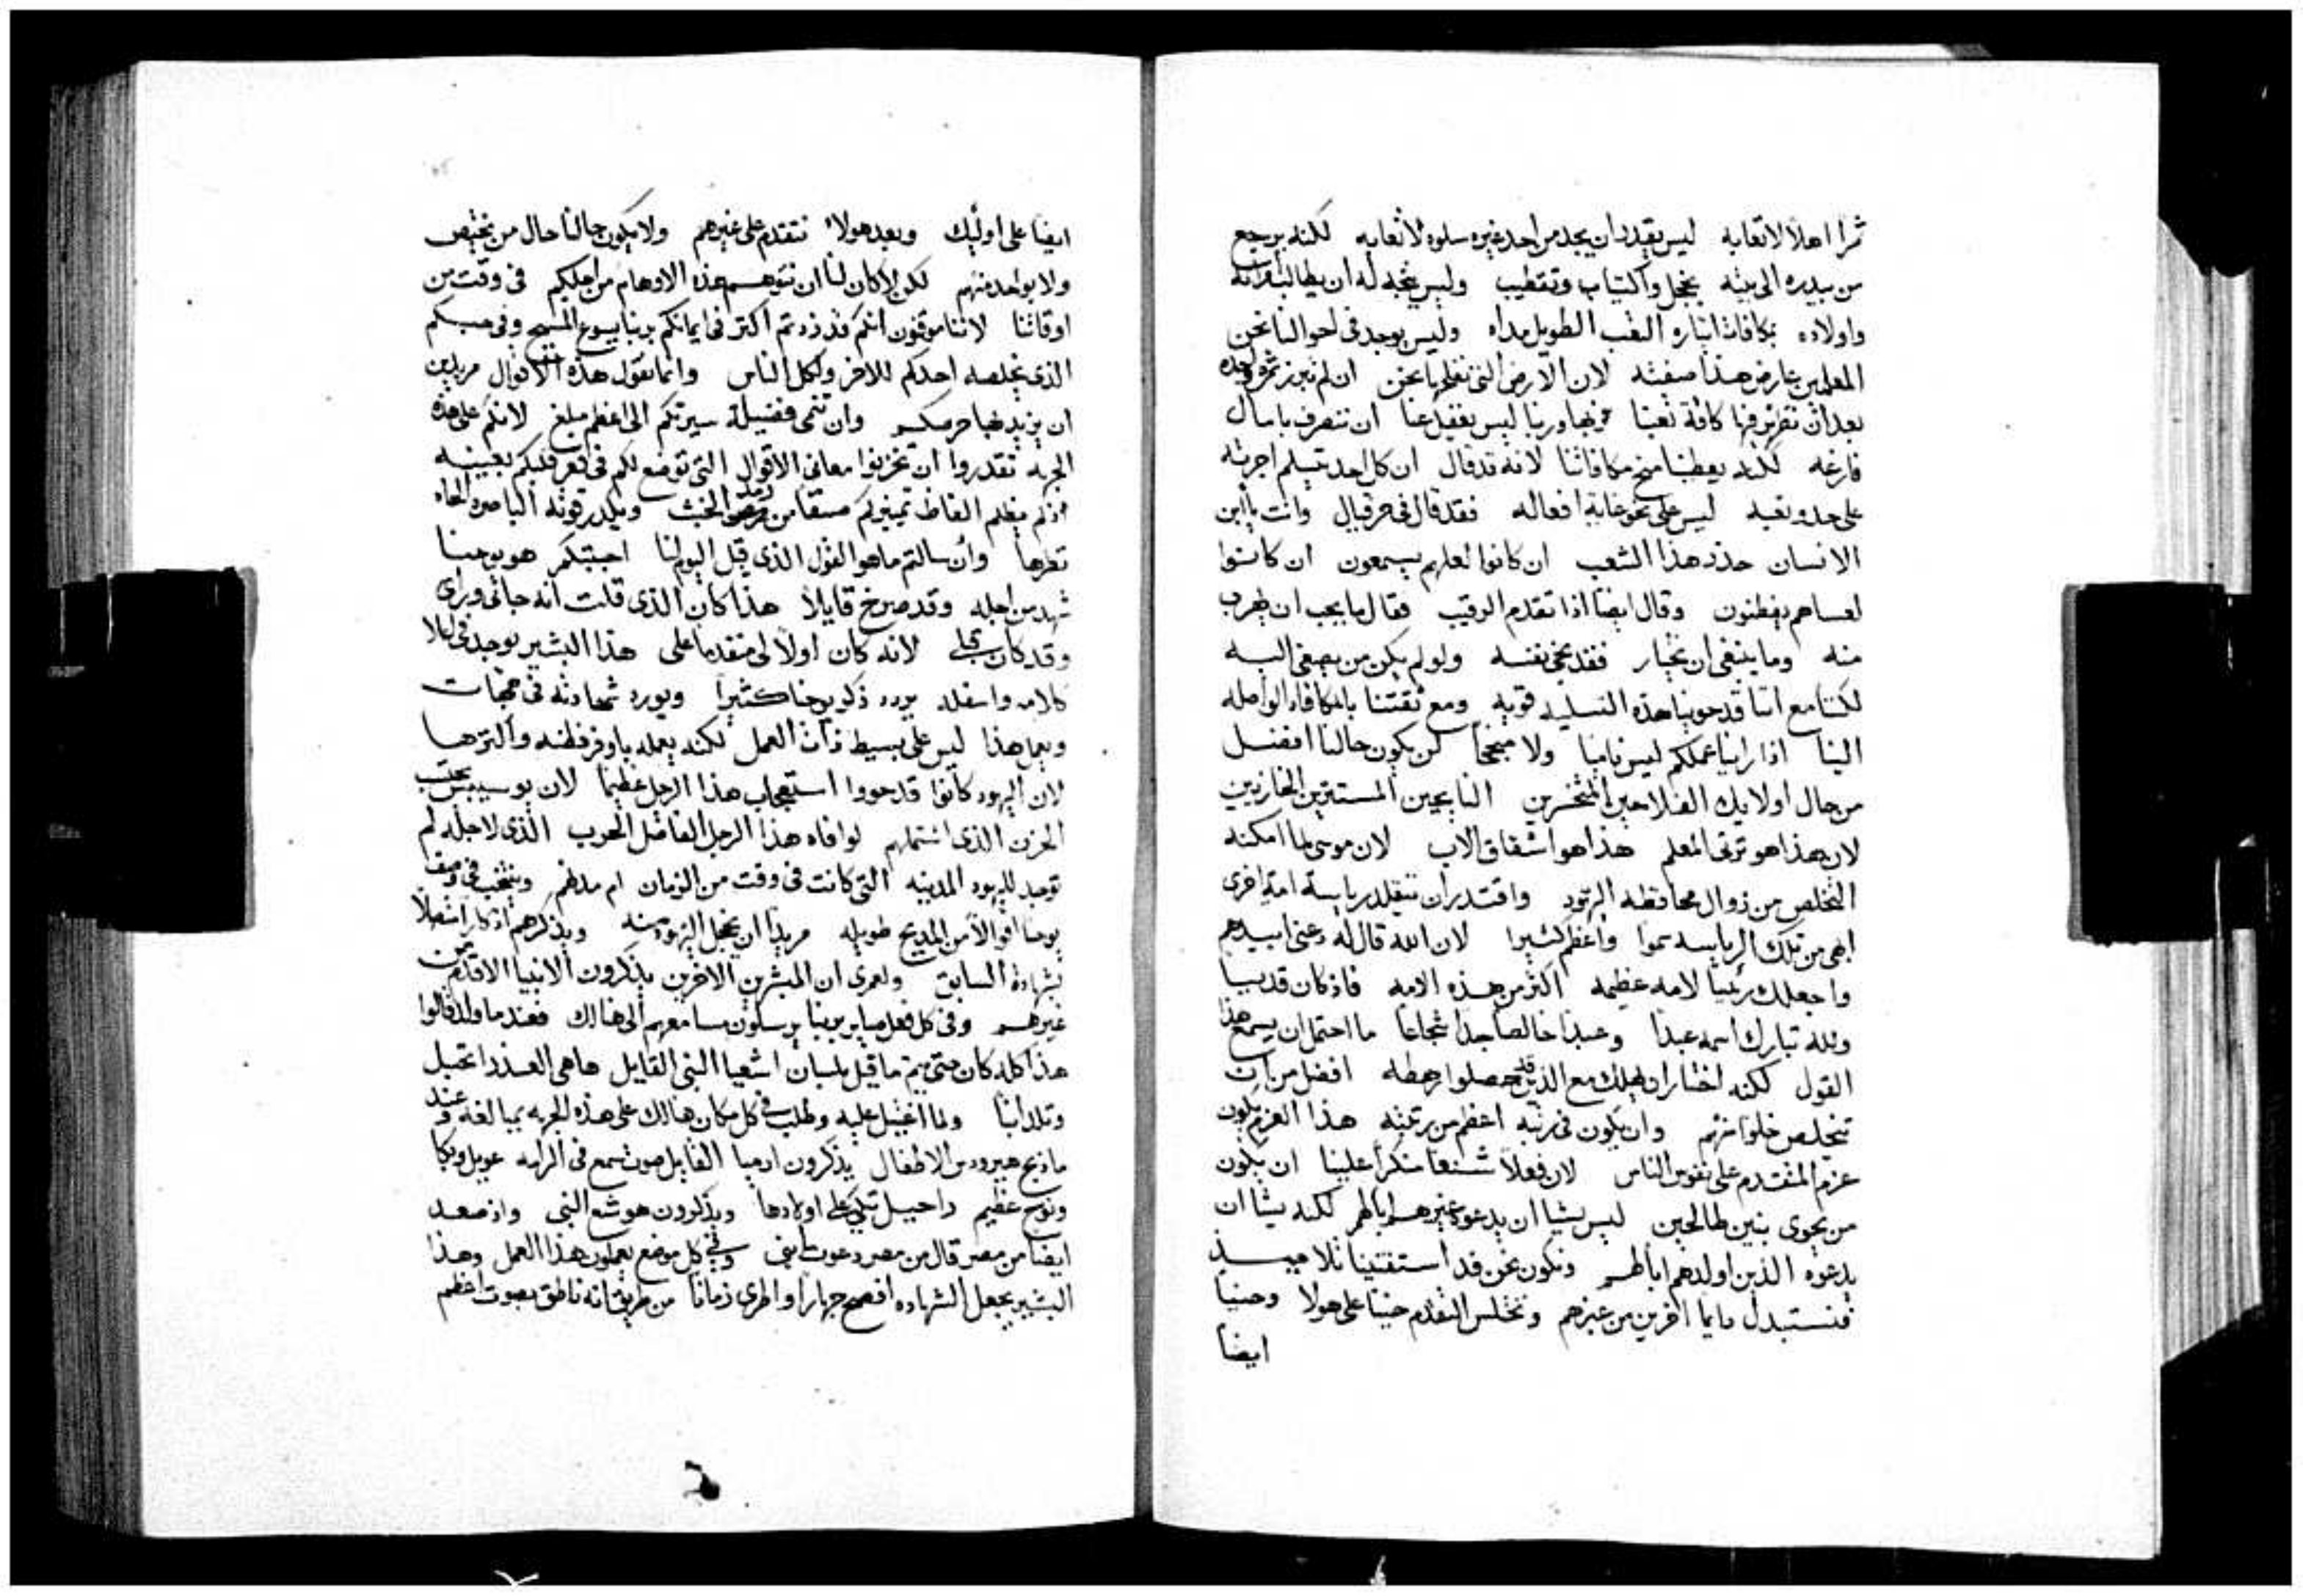 ثمرا اهلا لاتعابه ليس يقدر ان يجد من احد غيره سلوه لاتعابه لكنه يرجع
من بيدره الى بيته بخجل واكتياب وتقطيب وليس يتجه له ان يطالب امراته
واولاده بمكافات اتباره التعب الطويل مداه وليس يوجد في احوالنا نحن
المعلمين عارض هذا صفته لان الارض التي نفلحها نحن ان لم تبرز ثمره واحده
بعد ان تقرض فيها كافة تعبنا عزيها وربنا ليس يغفل عنا ان ننصرف بامال
فارغه لكنه يعطينا منح مكافاتنا لانه قد قال ان كل احد يتسلم اجرته
على حد وتعبه ليس على نحو غاية افعاله فقد قال في حزقيال وانت يا ابن
الانسان حذر هذا الشعب ان كانوا لعلهم يسمعون ان كانوا
لعساهم يفطنون وقال ايضا اذا تقدم الرقيب فقال ما يجب ان يهرب
منه وما ينبغي ان يختار فقد نجى نفسه ولو لم يكن من يصغي اليه
لكننا مع اننا قد حوينا هذه التسليه قويه ومع ثقتنا بالمكافاه الواصله
الينا اذا راينا عملكم ليس ناميا ولا منجحا لن يكون حالنا افضل
من حال اولايك الفلاحين المتخسرين النايحين المستترين الخازيين
لان هذا هو ترثى المعلم هذا هو اشفاق الاب لان موسى لما امكنه
التخلص من زوال محافظه اليهود واقتدر ان يتقلد رياسة امة اخرى
ابهى من تلك الرياسه سموا واعظم كثيرا لان الله قال له دعنى ابيدهم
واجعلك رئيسا لامه عظيمه اكثر من هذه الامه فاذ كان قديسا
ولله تبارك اسمه عبدا وعبدا خالصا جدا شجاعا ما احتمل ان يسمع هذا
القول لكنه اختار ان يهلك مع الذين قد حصلوا رهطه افضل من ان
يتخلص خلوا منهم وان يكون في رتبه اعظم من رتبته هذا العزم يكون
عزم المتقدم على نفوس الناس لان فعلا شنعا منكرا علينا ان يكون
من يحوى بنين طالحين ليس يشا ان يدعوه غيرهم اباً لهم لكنه يشا ان
يدعوه الذين اولدهم اباً لهم ونكون نحن قد استفتينا تلاميذ
فنستبدل دايما اخرين من غيرهم ونختلس التقدم حينا على هولا وحينيا
ايضا
ايضا على اوليك وبعد هولاء نتقدم على غيرهم ولا يكون حالنا حال من يختص
ولا بواحد منهم لكن لا كان لنا ان نتوهم هذه الاوهام من اجلكم في وقت من
اوقاتنا لاننا موقنون انكم قد زدتم اكثر في ايمانكم بربنا يسوع المسيح وفي حبكم
الذي يخلصه احدكم للاخر ولكل الناس وانما نقول هذه الاقوال مريدين
ان يزيد بها حرصكم وان تنمى فضيلة سيرتكم الى اعظم مبلغ لانكم على هذه
الجهه تقدروا ان تخزنوا معاني الاقوال التي توضع لكم في قعر قلبكم بعينيه
اذ لم يظلم الفاظ تمييزكم منبقا من رمد الخبث ويكدر قوته الباصره الحاد
نظرها وان سالتم ما هو القول الذي قيل اليوم لنا اجبتكم هو يوحنا
شهد من اجله وقد صرخ قايلا هذا كان الذي قلت انه جائى ورائى
وقد كان قبلى لانه كان اولا لي متقدما على هذا البشير يوجد في اعلا
كلامه واسفله يردد ذكر يوحنا كثيرا ويورد شهادته في جهات
ويعمل هذا ليس على بسيط ذات العمل لكنه يعمله باوفر فطنه واكثرها
لان اليهود كانوا قد حووا استعجاب هذا الرجل عظيما لان يوسيبس يحتسب
الحزن الذي اشتملهم لوافاه هذا الرجل الفاضل الحرب الذي لاجله لم
توجد لليهود المدينه التي كانت في وقت من الزمان ام مدنهم وينتخب في وصف
يوحنا اقوالا من المديح طويله مريدا ان يخجل اليهود منه ويذكرهم اذكارا متصلا
بشهادة السابق ولعمرى ان المبشرين الاخرين يذكرون الانبيا الاقدمين
غيرهم وفي كل فعل صاير بربنا يرسلون سامعهم الى هنالك فعند ما ولد قالوا
هذا كله كان حتى يتم ما قيل بلسان اشعيا النبي القايل ها هي العذرا تحبل
وتلد ابنا ولما اغتيل عليه وطلب في كل مكان هنالك على هذه الجهه بمبالغه وعند
ما ذبح هيرودس الاطفال يذكرون ارميا القايل صوت سمع في الرامه عويل وبكا
ونوح عظيم راحيل تبكي على اولادها ويذكرون هوشع النبي واذ صعد
ايضا من مصر قال من مصر دعوت ابنى وفي كل موضع يعملون هذا العمل وهذا
البشير يجعل الشهاده افصح جهارا واطرى زمانا من طريق انه ناطق بصوت اعظم